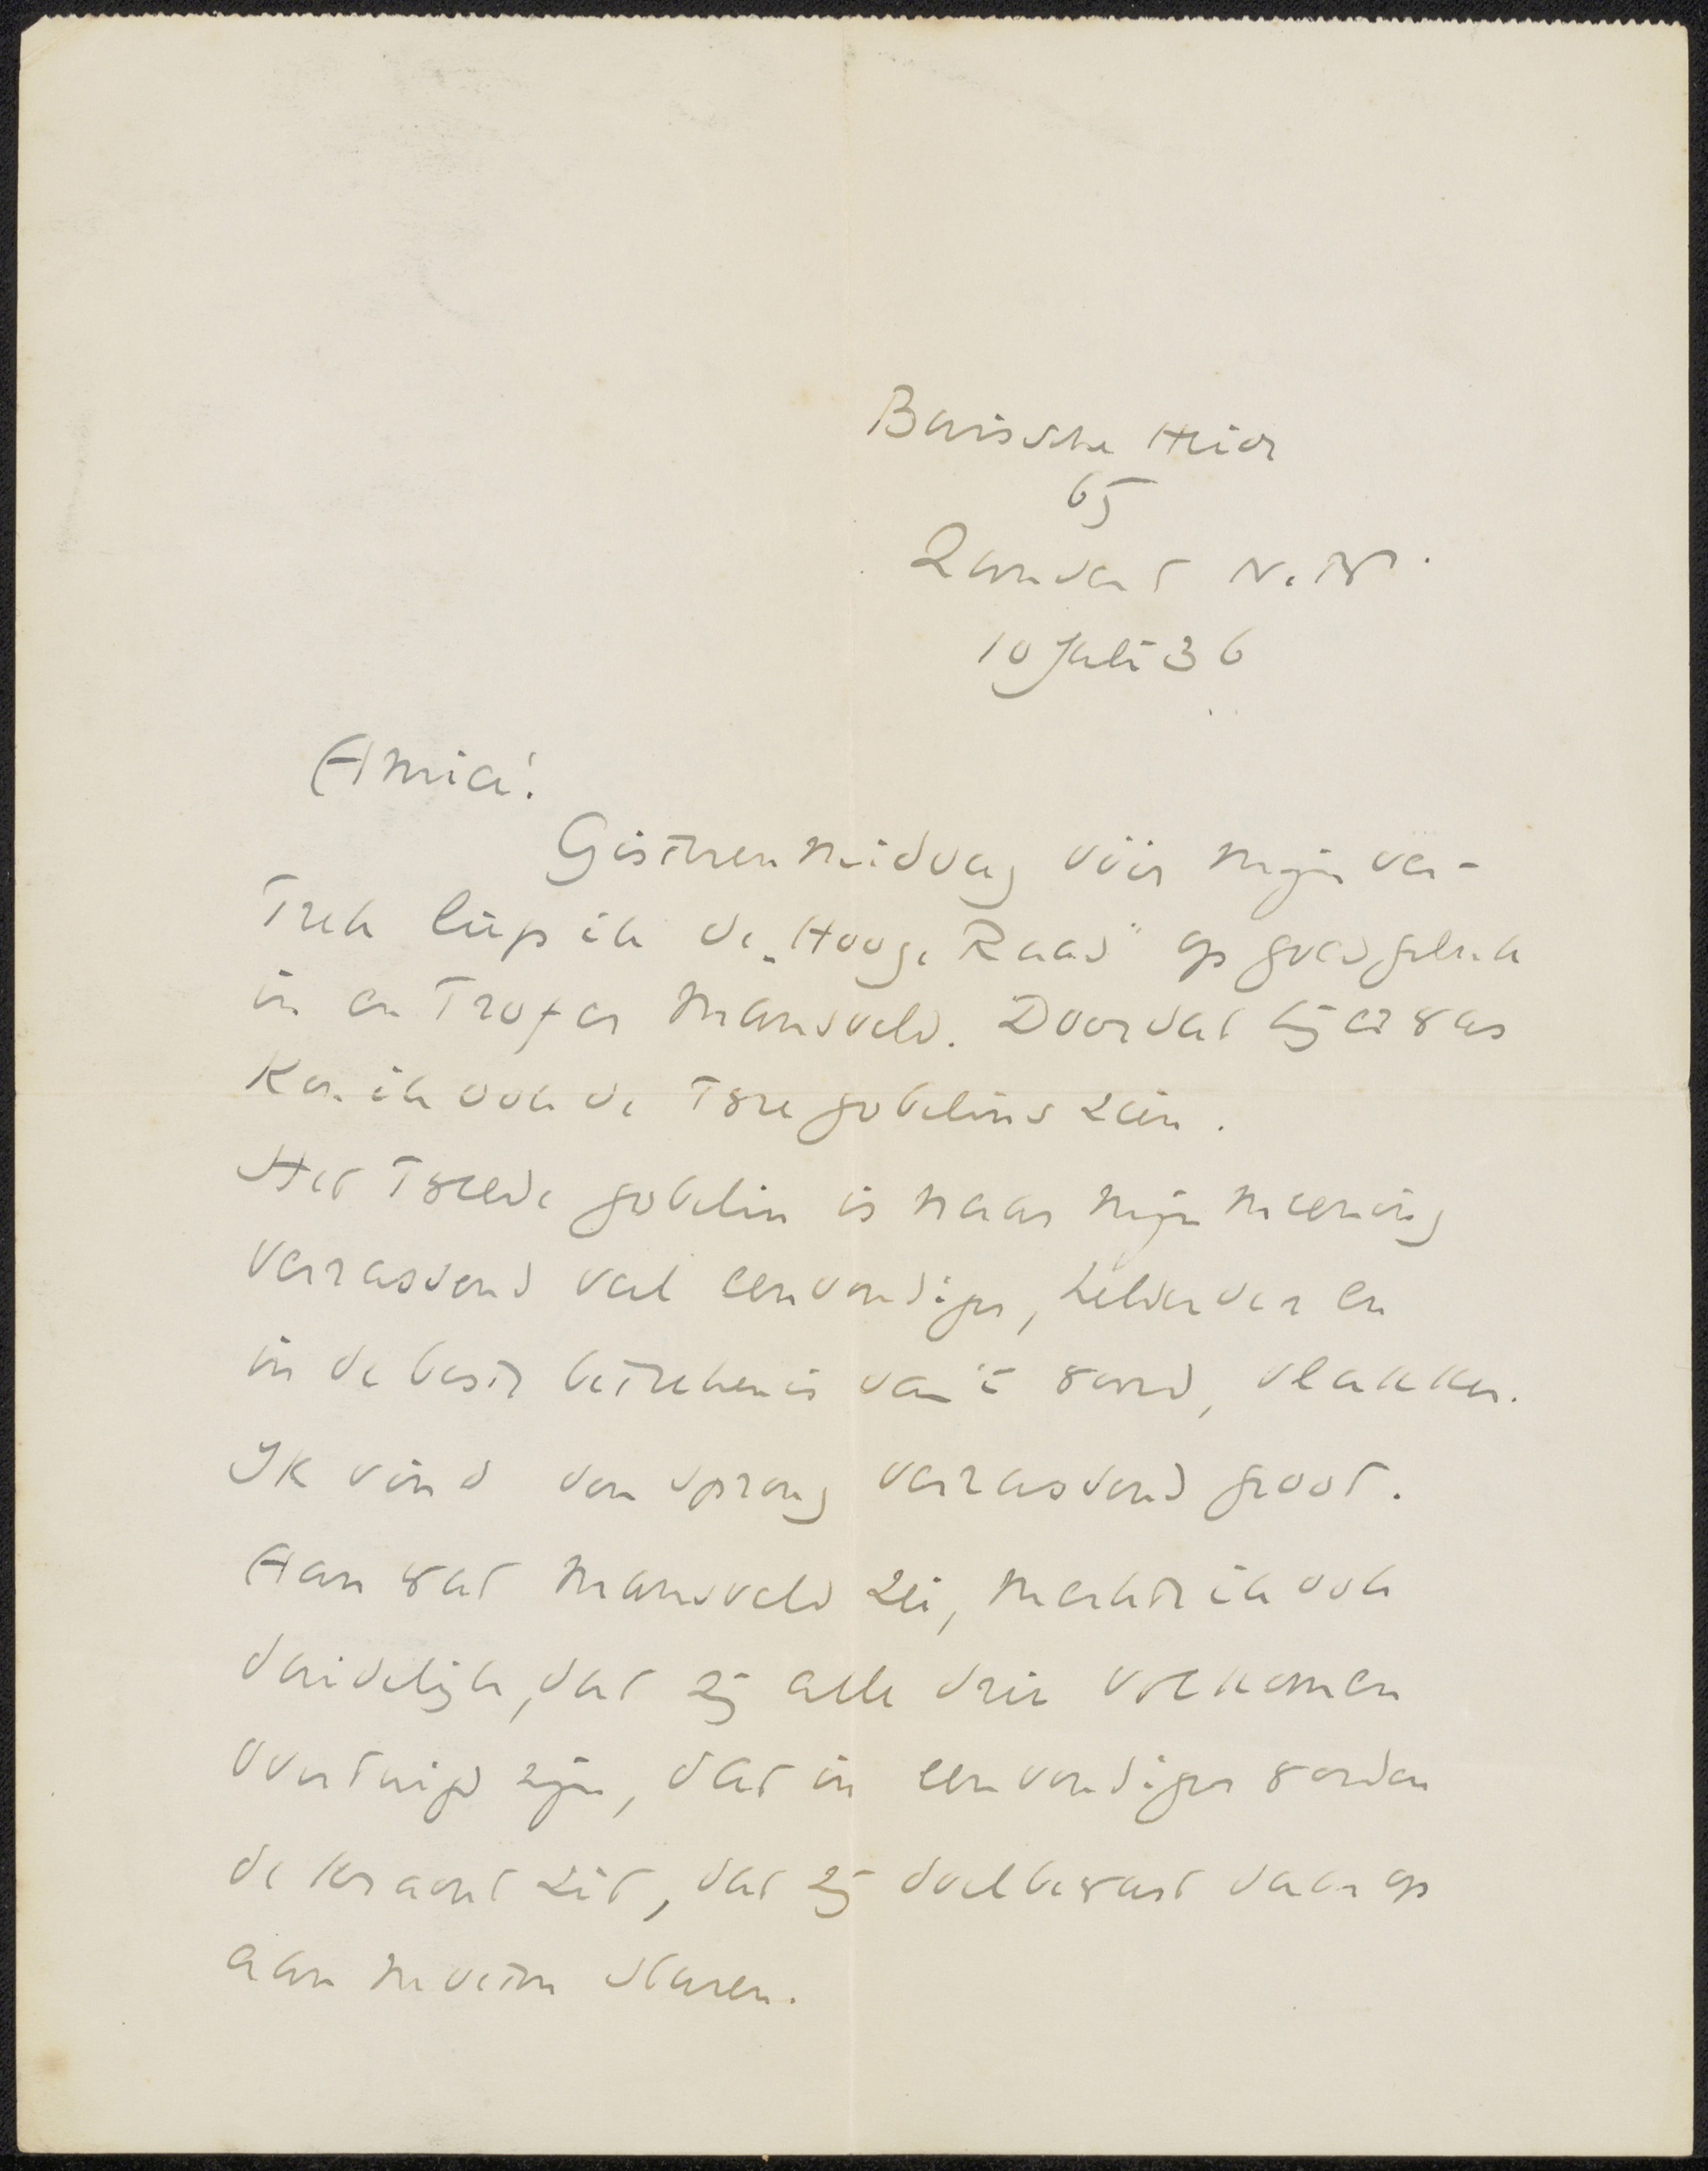 Buissche Heide
65
Zundert N.B.
10 Juli 36
Amice!
Gisteren middag vóór mijn ver-
trek liep ik de „Hooge Raad" op goed geluk
in en trof er Mansveld. Doordat hij er was
kon ik ook de twee gobelins zien.
Het tweede gobelin is naar mijn meening
verrassend veel eenvoudiger, helderder en
in de beste beteekenis van 't woord, vlakker.
Ik vind den sprong verrassend groot.
Aan wat Mansveld zei, merkte ik ook
duidelijk, dat zij alle drie volkomen
overtuigd zijn, dat in eenvoudiger worden
de kracht zit, dat zij doelbewust daar op
aan moeten sturen.